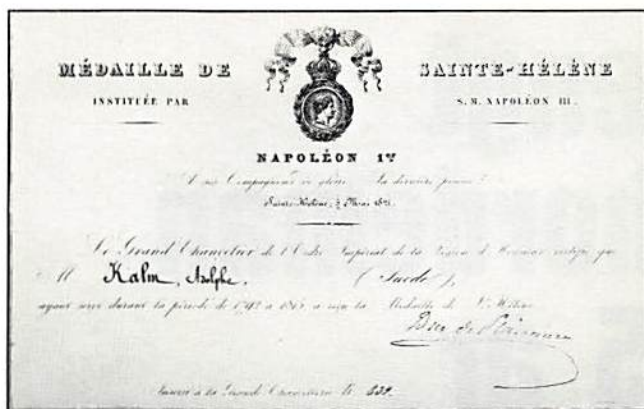 MÉDAILLE DE SAINTE-HÉLÈNE
INSTITUÉE PAR S. M. NAPOLÉON III.
NAPOLÉON 1er
A ses Compagnons de gloire. Sa dernière pensée!
Sainte-Hélène, 5 Mai 1821.
Le Grand Chancelier de l'Ordre Impérial de la Légion d'Honneur certifie que
M Kalm, Adolphe. (Suède),
ayant servi durant la période de 1792 à 1815, a reçu la Médaille de Ste Hélène.
Duc de Plaisance
Inscrit à la Grande Chancellerie No